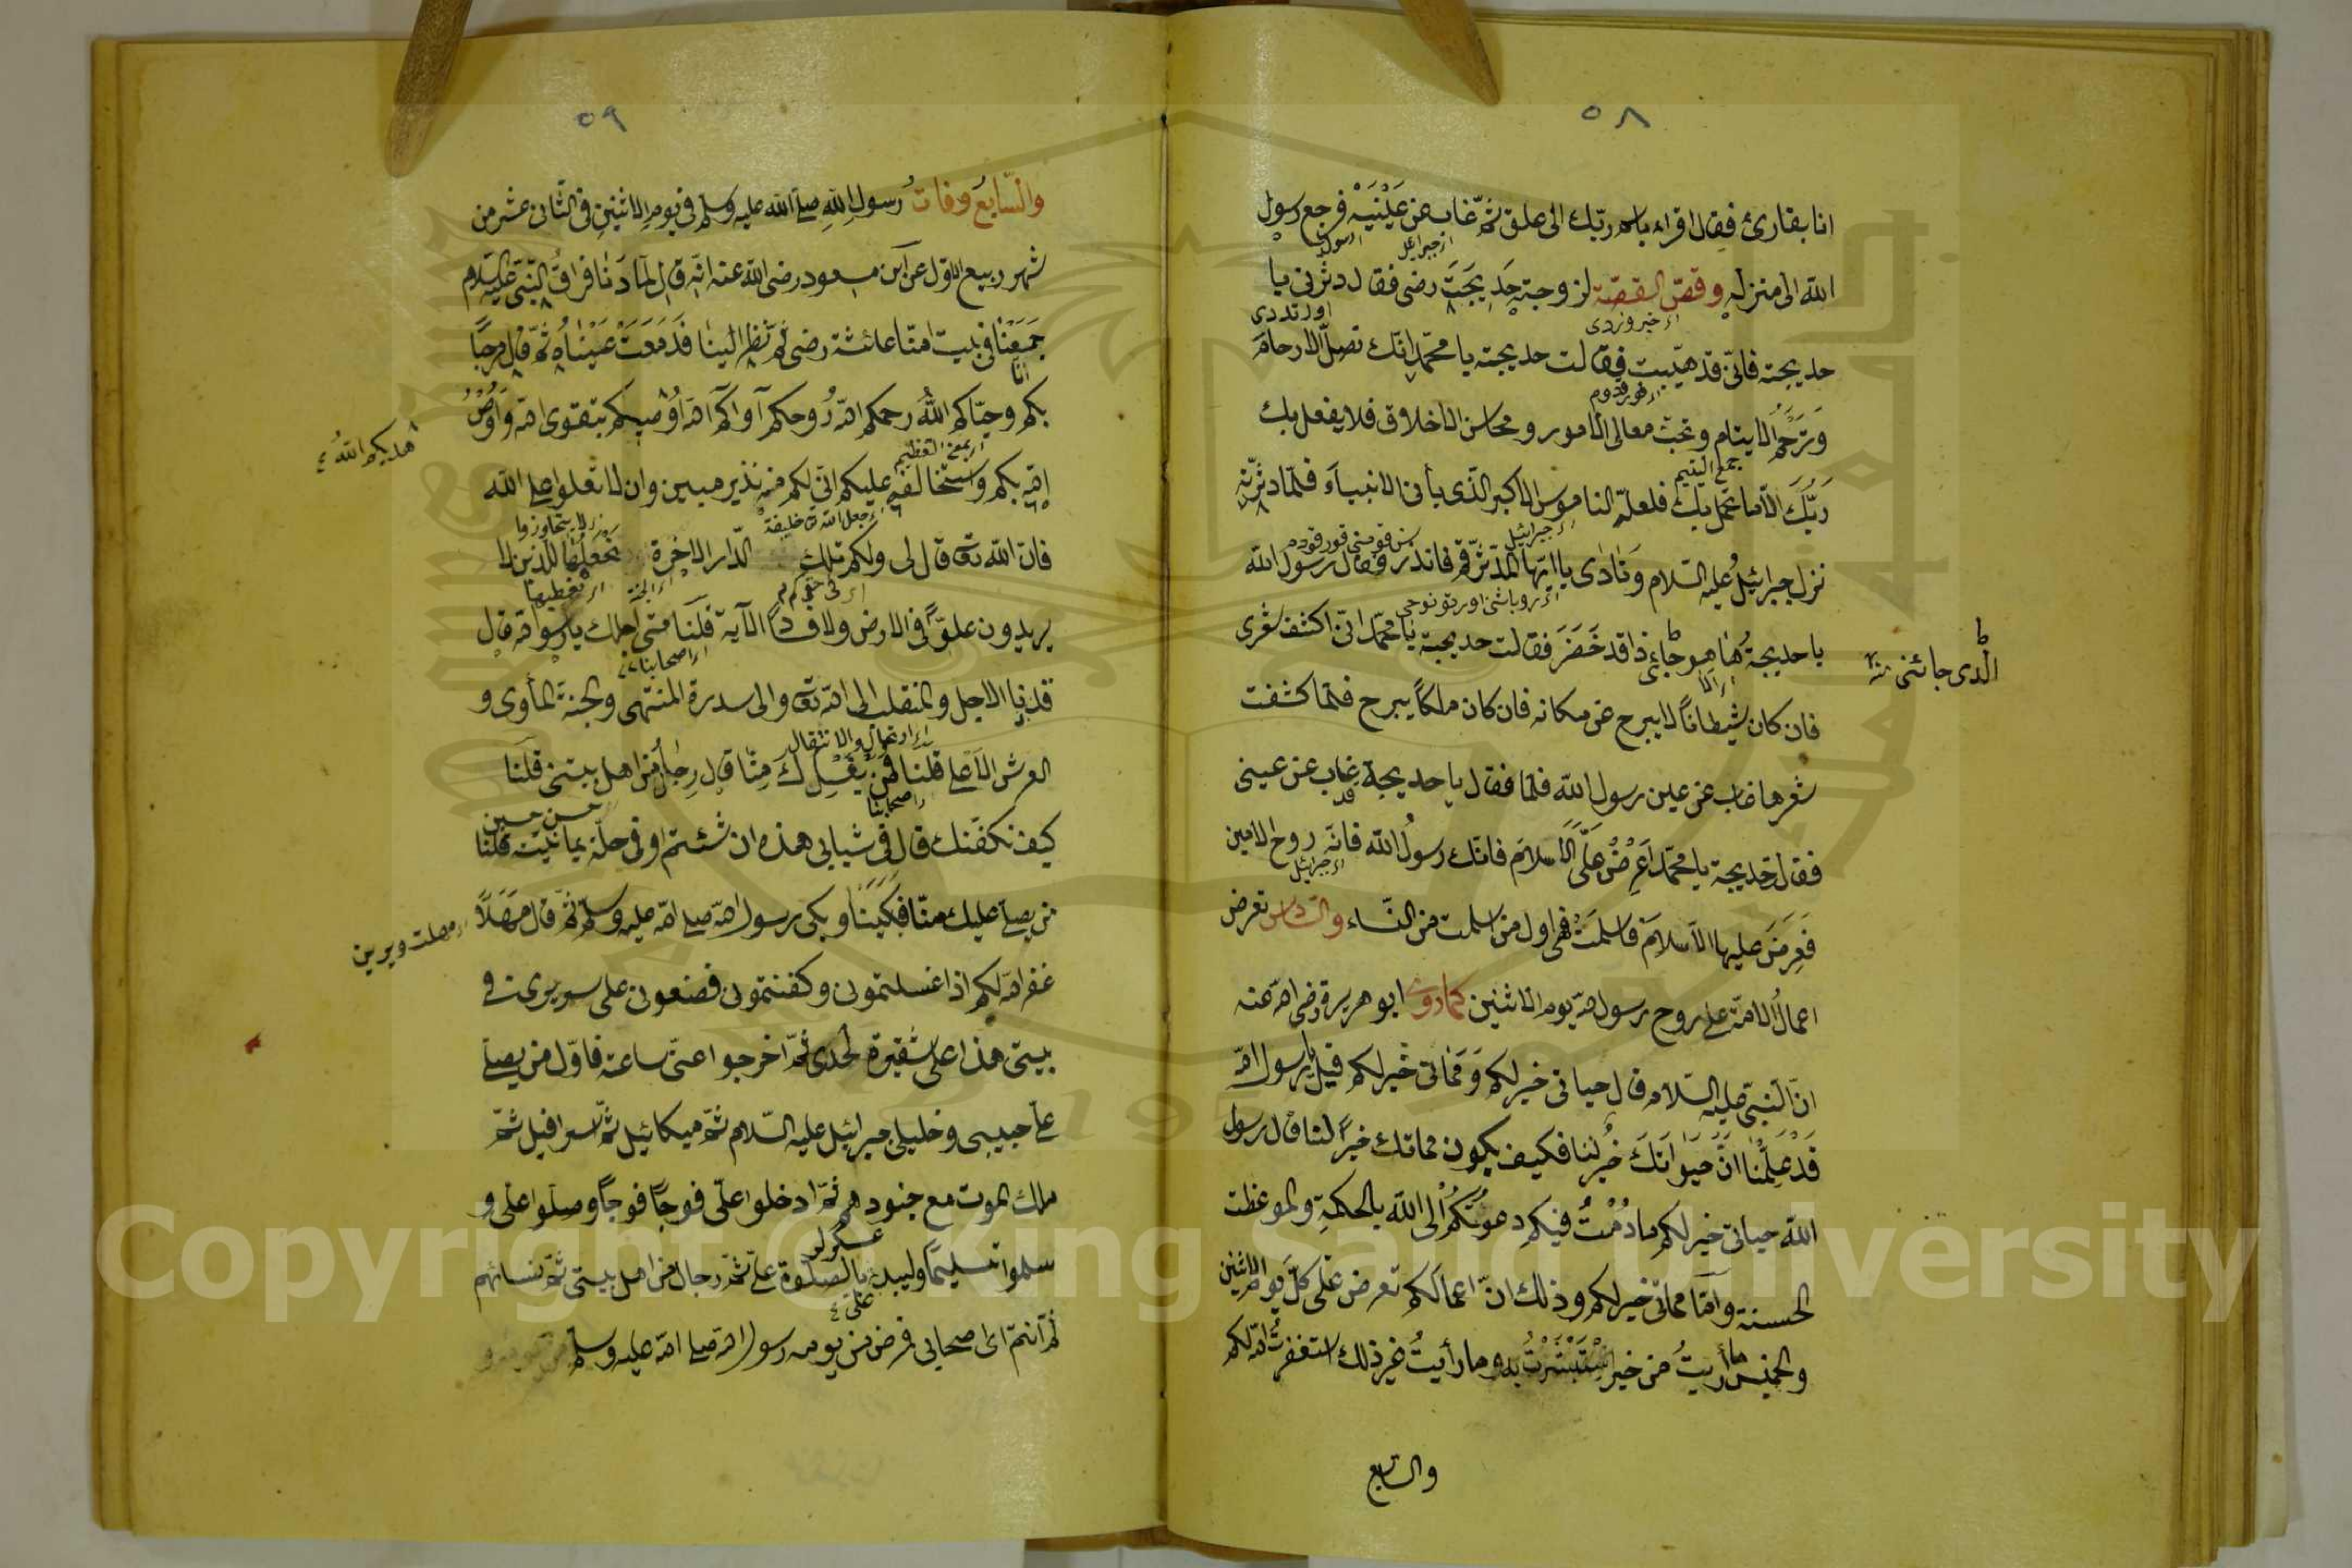 ٥٨
انا بقارئ فقال اقراء باسم ربّك الى علق ثمّ غاب عن عَيْنَيْهِ فرجع رسول
الله الى منزله وقصّ القصّة لزوجته خديجت رضى فقال دثرنى يا
حديجة فانّى قد هيّبت فقالت حديجة يا محمّد انّك تصل الارحام
وترحم الايتام وتحب معالى الامور ومحاسن الاخلاق فلا يفعل بك
جمع اليتيم
ربّك الّا ما تحمل بك فلعلّه الناموس الاكبر الّذى يأتى الانبياء فلمّا دثرته
نزل جبرائيل عليه السّلام ونادى يا ايّها المدّثّر قم فانذر فقال رسول الله
يا حديجة ها هو جاء ذا قد حَضَرَ فقالت حديجة يا محمّد انّى اكشف شعرى
الّذى جائنى منه
فان كان شيطانًا لا يبرح عن مكانه فان كان ملكًا يبرح فلمّا كشفت
شعرها غاب عن عين رسول الله فلمّا فقال يا حديجة قد غاب عن عينى
فقال خديجة يا محمّد اَعْرِضْ علىّ الاسلام فانّك رسول الله فانّه روح الامين
اى جبرائيل
فعرض عليها الاسلام فاسلمت فهى اول من اسلمت من النّساء والسّادس تعرض
اعمال الامّة على روح رسول الله يوم الاثنين كما روى ابو هريرة رضى الله عنه
انّ النّبىّ عليه السّلام قال حياتى خير لكم ومماتى خير لكم قيل يا رسول الله
قد علمنا انّ حيواتك خير لنا فكيف يكون مماتك خيرًا لنا قال رسول
الله حياتى خير لكم ما دُمْتُ فيكم دعوتكم الى الله بالحكمة والموعظت
الحسنة وامّا مماتى خير لكم وذلك انّ اعمالكم تعرض علىّ كلّ يوم الاثنين
والخميس ما رأيتُ من خير استبشرتُ به وما رأيتُ غير ذلك استغفرتُ الله لكم
والسّابع
٥٩
والسّابع وفات رسول الله صلّى الله عليه وسلّم فى يوم الاثنين فى الثّانى عشر من
شهر ربيع الاوّل عن ابن مسعود رضى الله عنه انّه قال لمّا دنا فراق النّبىّ عليه السّلام
جمعنا فى بيت امّنا عائشة رضى ثمّ نظر الينا فدمعت عيناه ثمّ قال مرحبًا
بكم وحيّاكم الله رحمكم الله رُوحكم آواكم الله اوصيكم بتقوى الله واوصى
هديكم الله
اى بمعنى التعظيم
الله بكم واستخالفه عليكم انّى لكم منه نذير مبين وان لا تعلوا على الله
اى جعل الله خليفة
فانّ الله تعا قال لى ولكم تلك الدّار الاخرة نجعلها للّذين لا
يريدون علوًّا فى الارض ولا فسادًا الآية قلنا متى اجلك يا رسول الله قال
قد دنا الاجل والمنقلب الى الله تعا والى سدرة المنتهى والجنة المأوى و
اى ارتحال والانتقال
العرش الاعلى قلنا فمن يغسلك منّا قال رجال من اهل بيتى قلنا
حسن حسين
كيف نكفّنك قال فى ثيابى هذه ان شئتم او فى حلّة يمانيّة قلنا
من يصلّى عليك منّا فبكينا وبكى رسول الله صلّى الله عليه وسلّم ثمّ قال مَهْلاً
مهلت ويرين
غفر الله لكم اذا غسلتمونى وكفنتمونى فضعونى على سريرى فى
بيتى هذا على شفيرة لحدى ثمّ اخرجوا عنّى ساعة فاوّل من يصلّى
علىّ حبيبى وخليلى جبرائيل عليه السّلام ثمّ ميكائيل ثمّ اسرافيل ثمّ
ملك الموت مع جنودهم ثمّ ادخلوا علىّ فوجًا فوجًا وصلّوا علىّ و
سلموا تسليمًا وليبدأ بالصلوة علىّ ثمّ رجال من اهل بيتى ثمّ نسائهم
ثمّ انتم اى اصحابى فرض من يومه رسول الله صلّى الله عليه وسلّم
Copyright © King Saud University